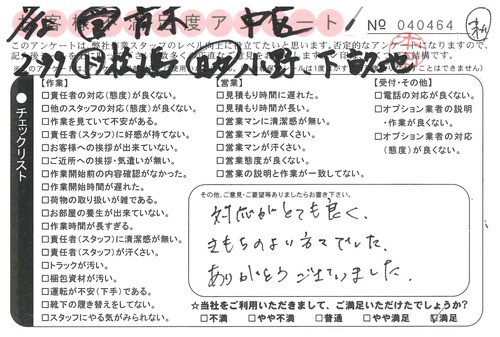 お客様満足度アンケート No 040464
このアンケートは、弊社作業スタッフのレベル向上に役立てたいと思います。否定的なアンケートになりますので、
【作業】
□責任者の対応(態度)が良くない。
□他のスタッフの対応(態度)が良くない。
□作業を見ていて不安がある。
□責任者(スタッフ)に好感が持てない。
□お客様への挨拶が出来ていない。
□ご近所への挨拶・気遣いが無い。
□作業開始前の内容確認がなかった。
□作業開始時間が遅れた。
□荷物の取り扱いが雑である。
□お部屋の養生が出来ていない。
□作業時間が長すぎる。
□責任者(スタッフ)に清潔感が無い。
□責任者(スタッフ)が汗くさい。
□トラックが汚い。
□梱包資材が汚い。
□運転が不安(下手)である。
□靴下の履き替えをしてない。
□スタッフにやる気がみられない。
【営業】
□見積もり時間に遅れた。
□見積もり時間が長い。
□営業マンに清潔感が無い。
□営業マンが煙草くさい。
□営業マンが汗くさい。
□営業態度が良くない。
□営業の説明と作業が一致してない。
【受付・その他】
□電話の対応が良くない。
□オプション業者の説明
・作業が良くない。
□オプション業者の対応
(態度)が良くない。
チェックリスト
その他、ご意見・ご要望等ありましたらお書き下さい。
対応がとても良く、
きもちのよい方でした。
ありがとうございました。
☆当社をご利用いただきまして、ご満足いただけたでしょうか?
□不満 □やや不満 □普通 □やや満足 ☑満足